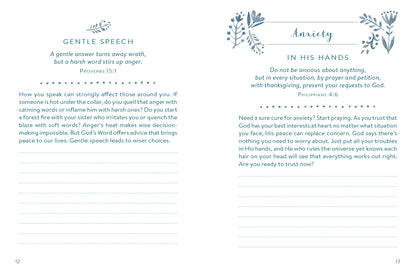 GENTLE SPEECH
A gentle answer turns away wrath,
but a harsh word stirs up anger.
PROVERBS 15:1
How you speak can strongly affect those around you. If
someone is hot under the collar, do you quell that anger with
calming words or inflame him with harsh ones? Do you start
a forest fire with your sister who irritates you or quench the
blaze with soft words? Anger's heat makes wise decision-
making impossible. But God's Word offers advice that brings
peace to our lives. Gentle speech leads to wiser choices.
12
Anxiety
IN HIS HANDS
Do not be anxious about anything,
but in every situation, by prayer and petition,
with thanksgiving, present your requests to God.
PHILIPPIANS 4:6
Need a sure cure for anxiety? Start praying. As you trust that
God has your best interests at heart no matter what situation
you face, His peace can replace concern. God says there's
nothing you need to worry about. Just put all your troubles
in His hands, and He who rules the universe yet knows each
hair on your head will see that everything works out right.
Are you ready to trust now?
13